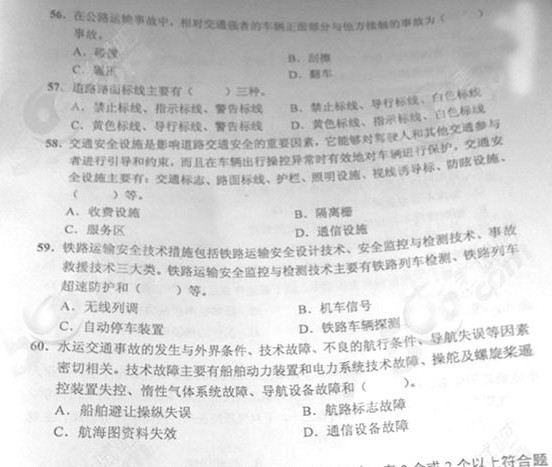 56. 在公路运输事故中，相对交通强者的车辆正面部分与他方接触的事故为（　　）
事故。
A. 碰撞
B. 刮擦
C. 碾压
D. 翻车
57. 道路路面标线主要有（　　）三种。
A. 禁止标线、指示标线、警告标线
B. 禁止标线、导行标线、白色标线
C. 黄色标线、导行标线、警告标线
D. 黄色标线、指示标线、白色标线
58. 交通安全设施是影响道路交通安全的重要因素，它能够对驾驶人和其他交通参与
者进行引导和约束，而且在车辆出行操控异常时有效地对车辆进行保护。交通安
全设施主要有：交通标志、路面标线、护栏、照明设施、视线诱导标、防眩设施、
（　　）等。
A. 收费设施
B. 隔离栅
C. 服务区
D. 通信设施
59. 铁路运输安全技术措施包括铁路运输安全设计技术、安全监控与检测技术、事故
救援技术三大类。铁路运输安全监控与检测技术主要有铁路列车检测、铁路列车
超速防护和（　　）等。
A. 无线列调
B. 机车信号
C. 自动停车装置
D. 铁路车辆探测
60. 水运交通事故的发生与外界条件、技术故障、不良的航行条件、导航失误等因素
密切相关。技术故障主要有船舶动力装置和电力系统技术故障、操舵及螺旋桨遥
控装置失控、惰性气体系统故障、导航设备故障和（　　）。
A. 船舶避让操纵失误
B. 航路标志故障
C. 航海图资料失效
D. 通信设备故障
个或2个以上符合题